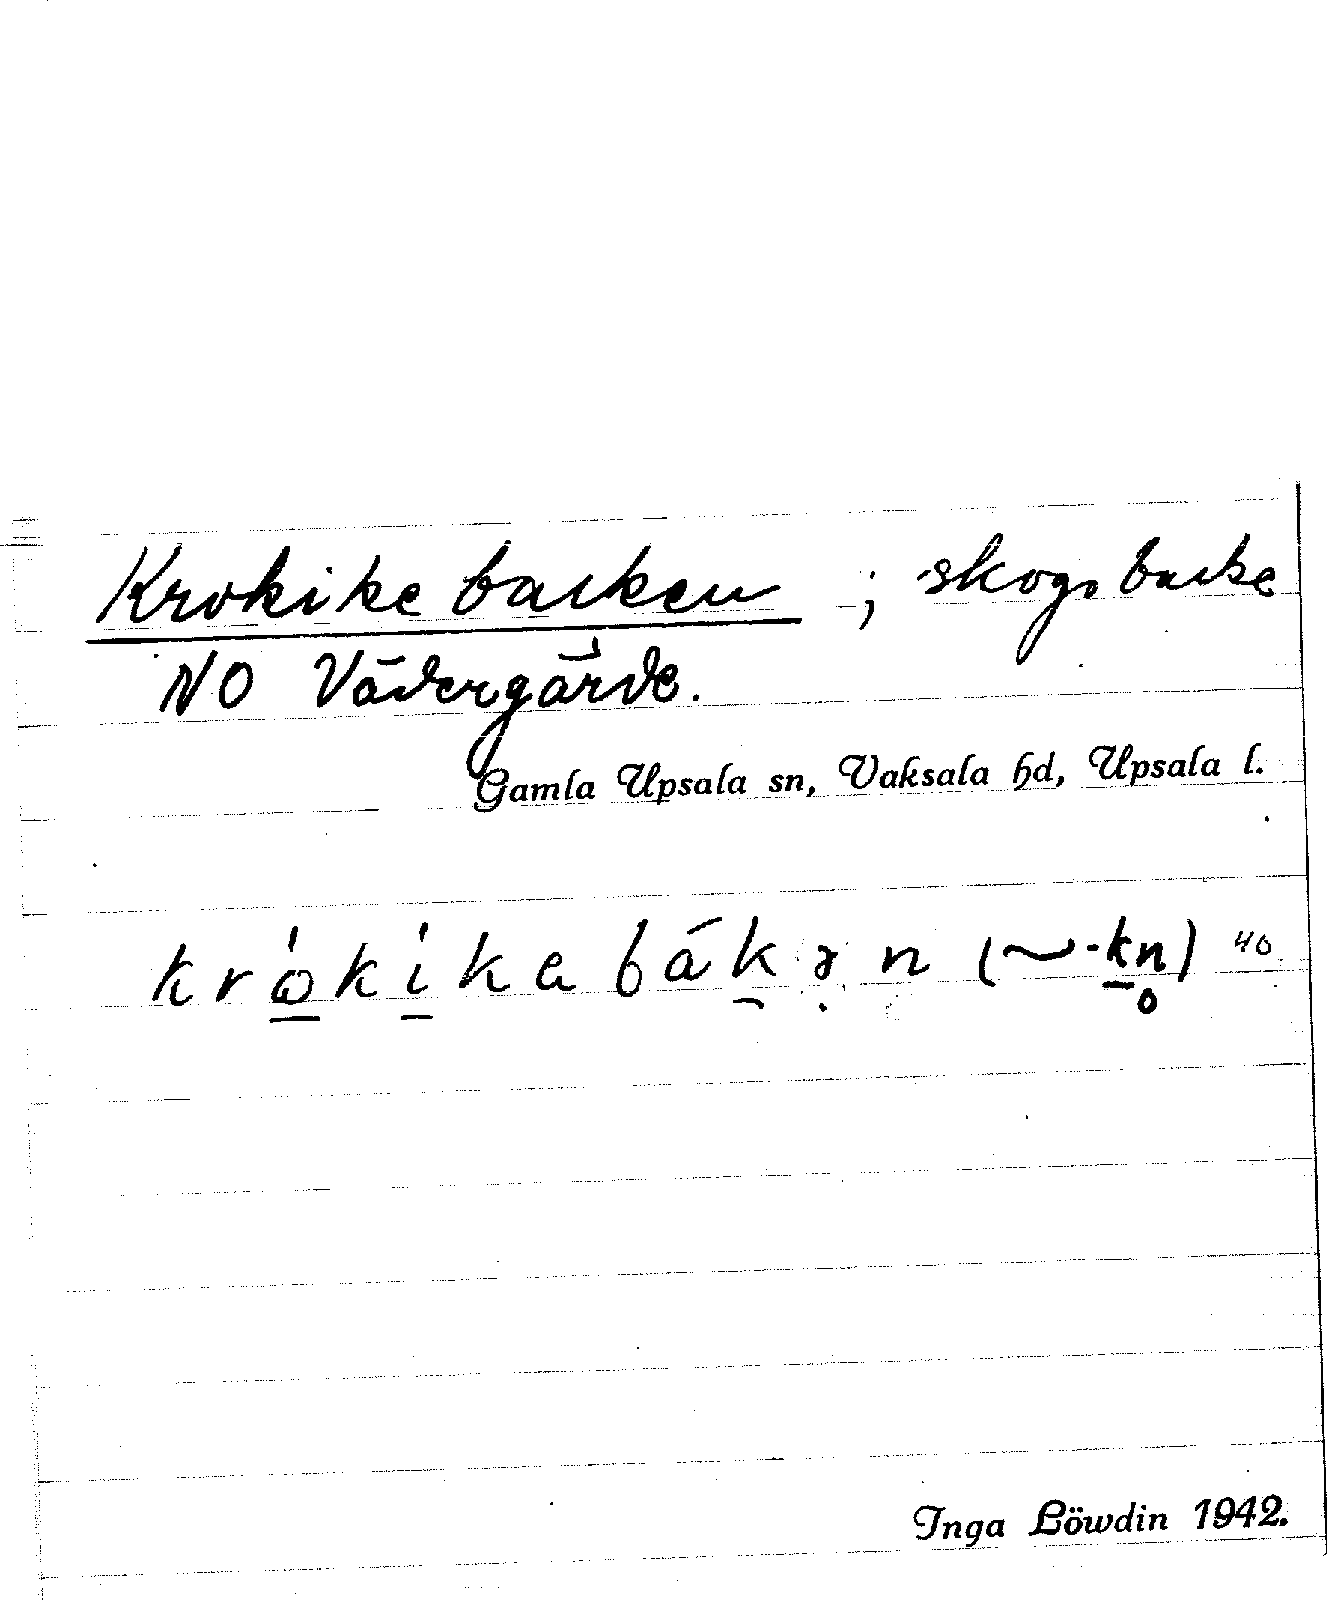 Krokikebacken ; skogsbacke
NO Vädergärde.
Gamla Upsala sn, Vaksala hd, Upsala l.
krώ̲kí̲ka bákən (~-kn̥) 40
Inga Löwdin 1942.